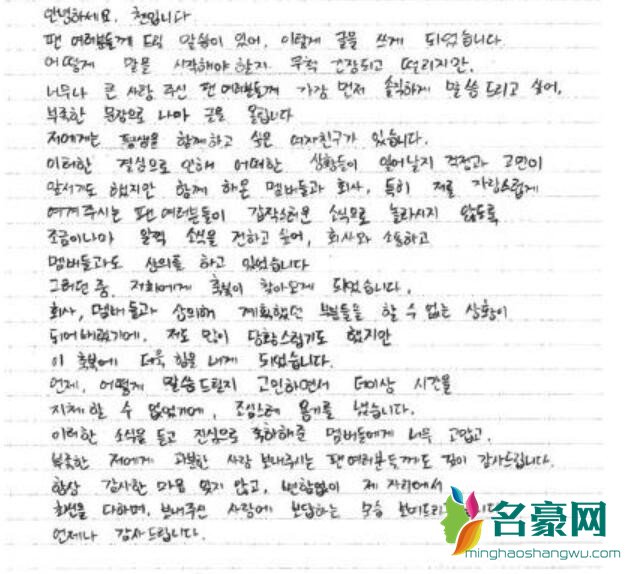 안녕하세요, 첸입니다
팬 여러분들께 드릴 말씀이 있어, 이렇게 글을 쓰게 되었습니다.
어떻게 말을 시작해야 할지 무척 긴장되고 떨리지만,
너무나 큰 사랑 주신 팬 여러분들께 가장 먼저 솔직하게 말씀드리고 싶어,
부족한 문장으로 나마 글을 올립니다
저에게는 평생을 함께하고 싶은 여자친구가 있습니다.
이러한 결심으로 인해 어떠한 상황들이 일어날지 걱정과 고민이
앞서기도 했지만 함께 해온 멤버들과 회사, 특히 저를 자랑스럽게
여겨주시는 팬 여러분들이 갑작스러운 소식으로 놀라시지 않도록
조금이나마 일찍 소식을 전하고 싶어, 회사와 소통하고
멤버들과도 상의를 하고 있었습니다
그러던 중, 저희에게 축복이 찾아오게 되었습니다.
회사, 멤버들과 상의해 계획했던 부분들을 할 수 없는 상황이
되어버렸기에, 저도 많이 당황스럽기도 했지만
이 축복에 더욱 힘을 내게 되었습니다.
언제, 어떻게 말씀드릴지 고민하면서 더이상 시간을
지체할 수 없었기에, 조심스레 용기를 냈습니다.
이러한 소식을 듣고 진심으로 축하해준 멤버들에게 너무 고맙고,
부족한 저에게 과분한 사랑 보내주시는 팬 여러분들께도 깊이 감사드립니다.
항상 감사한 마음 잊지 않고, 변함없이 제 자리에서
최선을 다하며, 보내주신 사랑에 보답하는 모습 보여드리
언제나 감사드립니다.
名豪网
minghaoshangwu.com